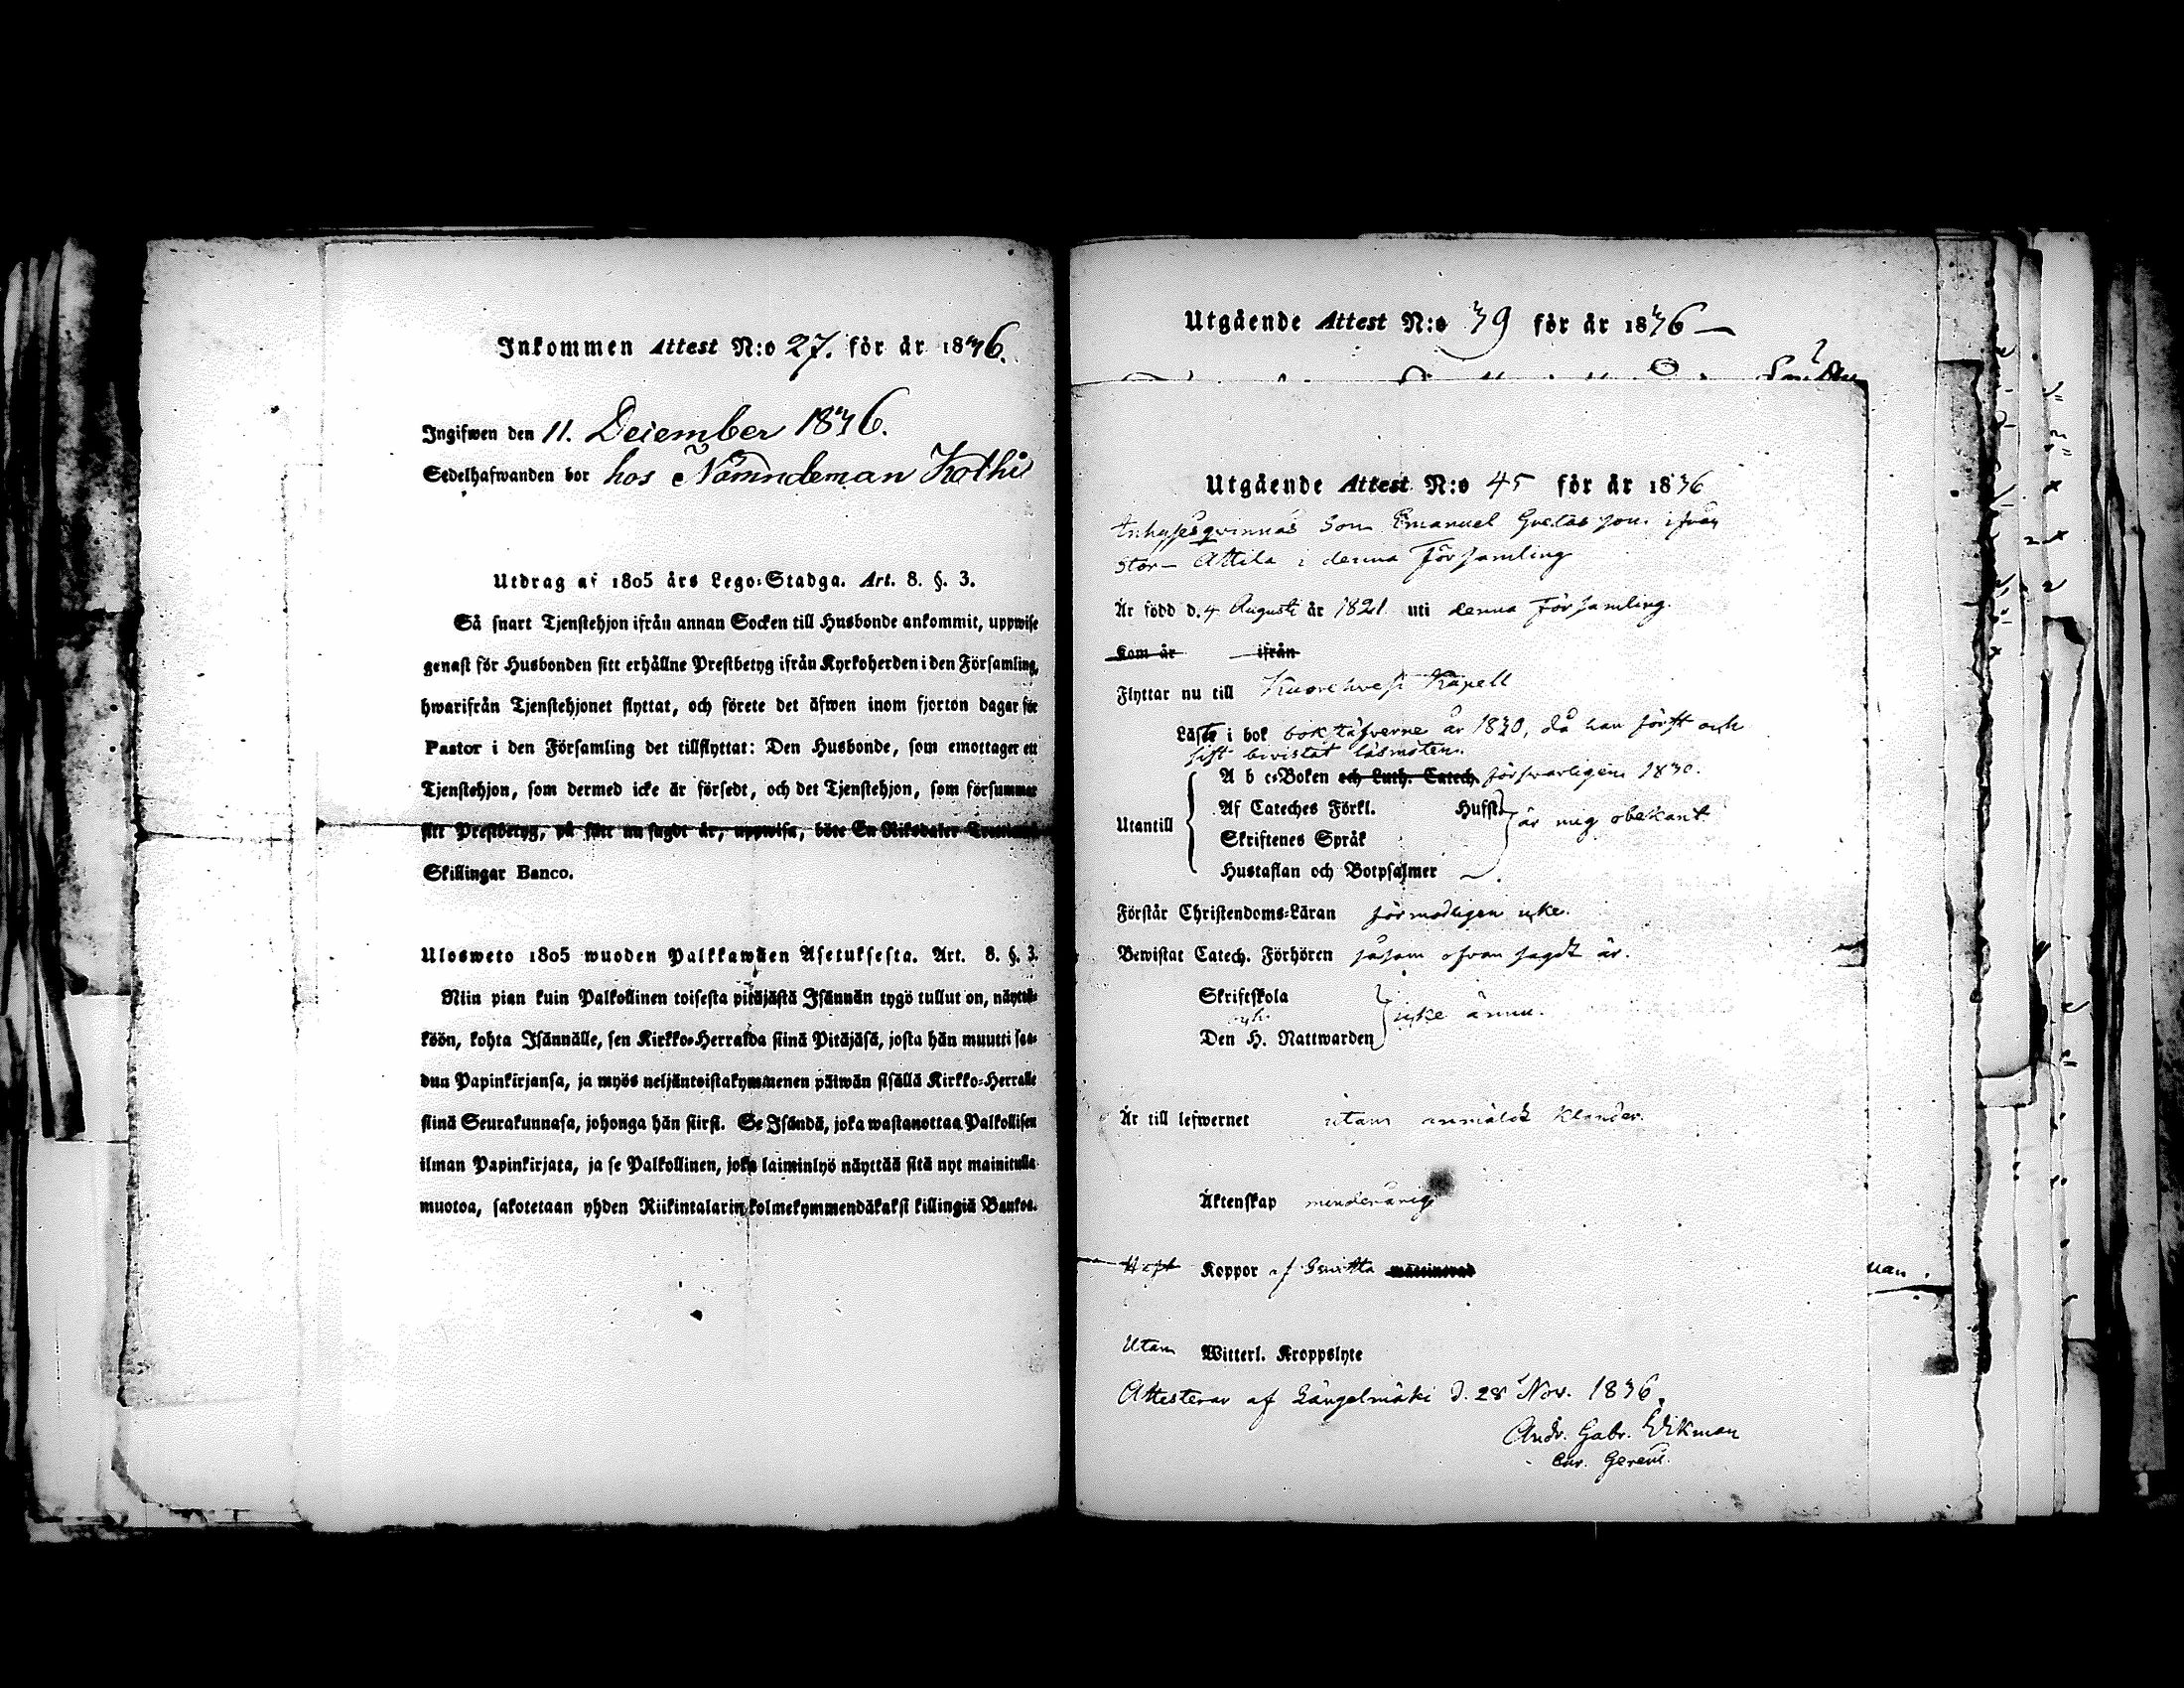 Inkommen Attest N:o 27. för år 1836.
Ingifwen den 11. December 1836.
Sedelhafwanden bor hos Nämndeman Kothi
Utdrag af 1805 års Lego-Stadga. Art. 8. §. 3.
Så snart Tjenstehjon ifrån annan Socken till Husbonde ankommit, uppwise
genast för Husbonden sitt erhållne Prestbetyg ifrån Kyrkoherden i den Församling,
hwarifrån Tjenstehjonet flyttat, och förete det äfwen inom fjorton dagar för
Pastor i den Församling det tillflyttat: Den Husbonde, som emottager ett
Tjenstehjon, som dermed icke är försedt, och det Tjenstehjon, som försummar
sitt Prestbetyg, på sätt nu sagdt är, uppwisa, böte En Riksdaler Trettiotvå
Skillingar Banco.
Ulosweto 1805 wuoden Palkkawäen Asetuksesta. Art. 8. §. 3.
Niin pian kuin Palkollinen toisesta pitäjästä Isännän tygö tullut on, näyttä-
köön, kohta Isännälle, sen Kirkko-Herralda siinä Pitäjäsä, josta hän muutti saa-
dun Papinkirjansa, ja myös neljäntoistakymmenen päiwän sisällä Kirkko-Herralle
siinä Seurakunnasa, johonga hän siirsi. Se Isändä, joka wastanottaa Palkollisen
ilman Papinkirjata, ja se Palkollinen, joka laiminlyö näyttää sitä nyt mainitulla
muotoa, sakotetaan yhden Riikintalarin kolmekymmendäkaksi killingiä Bankoa.
Utgående Attest N:o 39 för år 1836
Utgående Attest N:o 45 för år 1836
Inhysesqvinnas Son Emanuel Gretas son ifrån
Stor-Attila i denna Församling
Är född d. 4 Augusti år 1821 uti denna Församling.
Kom år ifrån
Flyttar nu till Kuorehvesi Kapell
Läste i bok bokstäfverne år 1830, då han först och
sist bevistat läsmöten.
A b c-Boken och Luth. Catech. försvarligen 1830.
Af Cateches Förkl. Hufst. är mig obekant
Utantill
Skriftenes Språk
Hustaflan och Botpsalmer
Förstår Christendoms-Läran förmodligen icke.
Bewistat Catech. Förhören såsom ofvan sagdt är.
Skriftskola
och
Den H. Nattwarden icke ännu.
Är till lefwernet utan anmäldt klander.
Äktenskap minderårig
Haft Koppor af Smitta waccinerad
Utan Witterl. Kroppslyte
Attesterar af Längelmäki d. 28 Nov. 1836.
Andr. Gabr. Wikman
Cur. Gerens.